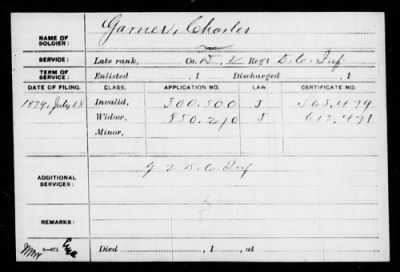 NAME OF SOLDIER: Garner, Charles
SERVICE: Late rank, Co. D, 2 Regt D.C. Inf
TERM OF SERVICE: Enlisted , 1 Discharged , 1
DATE OF FILING. CLASS. APPLICATION NO. LAW. CERTIFICATE NO.
1879, July 28 Invalid, 300.500 J 563.479
Widow, 850.210 J 617.471
Minor,
ADDITIONAL SERVICES: D.C. Inf
REMARKS:
Died , 1 , at